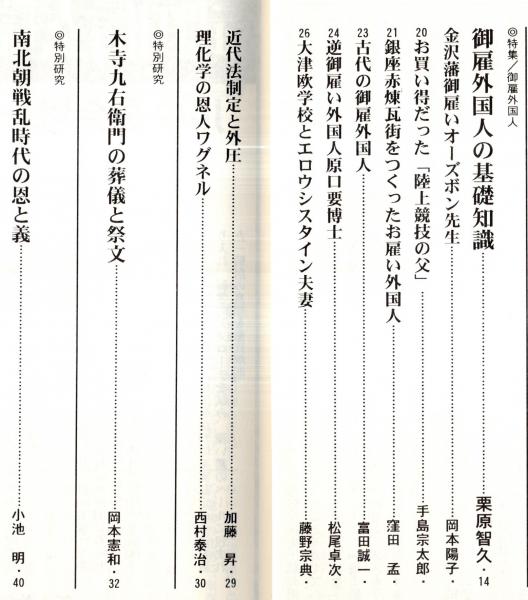 ◎特集/御雇外国人
御雇外国人の基礎知識 栗原智久・14
金沢藩御雇いオーズボン先生 岡本陽子・
20 お買い得だった「陸上競技の父」 手島宗太郎・
21 銀座赤煉瓦街をつくったお雇い外国人 窪田 孟・
23 古代の御雇外国人 富田誠一・
24 逆御雇い外国人原口要博士 松尾卓次・
26 大津欧学校とエロウシスタイン夫妻 藤野宗典・
近代法制定と外圧 加藤 昇・29
理化学の恩人ワグネル 西村泰治・30
◎特別研究
木寺九右衛門の葬儀と祭文 岡本憲和・32
◎特別研究
南北朝戦乱時代の恩と義 小池 明・40